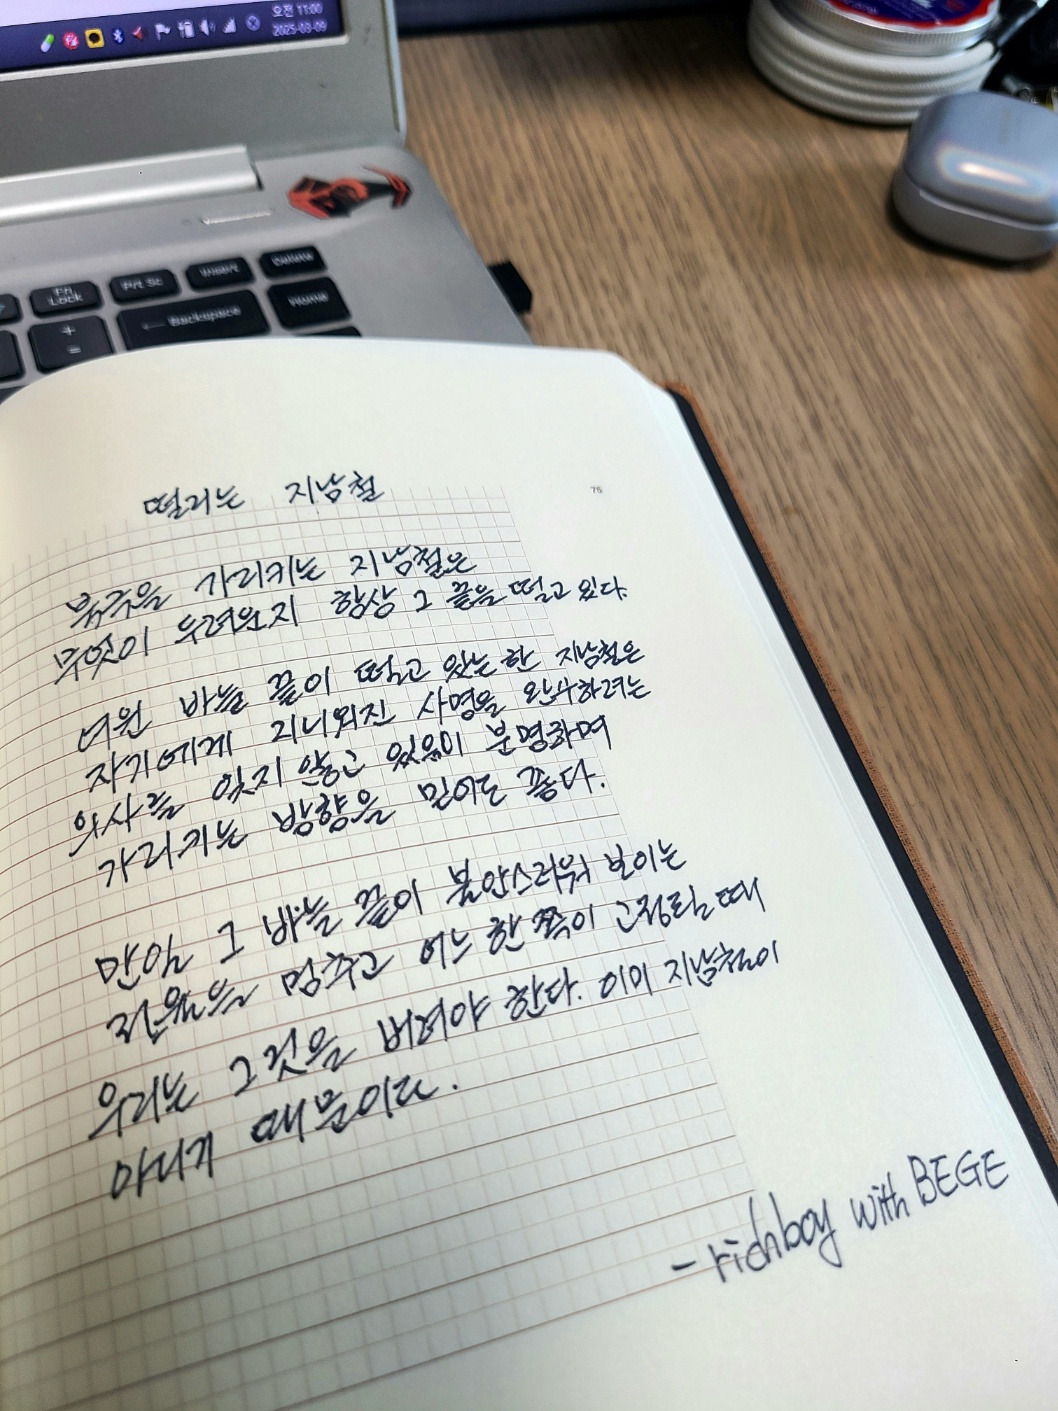 오전 11:00
2025-03-09
Fn Lock
Prt Sc
Insert
Delete
+
=
← Backspace
Home
75
떨리는 지남철
북극을 가리키는 지남철은
무엇이 두려운지 항상 그 끝을 떨고 있다.
여윈 바늘 끝이 떨고 있는 한 지남철은
자기에게 지니워진 사명을 완수하려는
의사를 잊지 않고 있음이 분명하며
가리키는 방향을 믿어도 좋다.
만일 그 바늘 끝이 불안스러워 보이는
전율을 멈추고 어느 한 쪽이 고정될 때
우리는 그것을 버려야 한다. 이미 지남철이
아니기 때문이다.
- richboy with BEGE